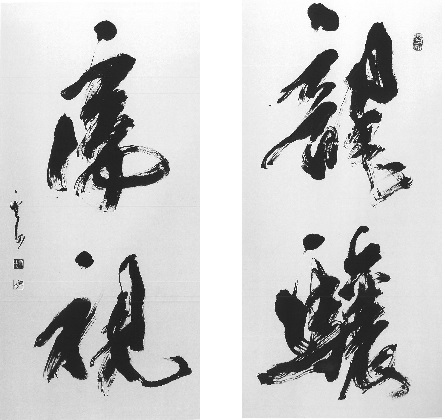 龍驤
虎視